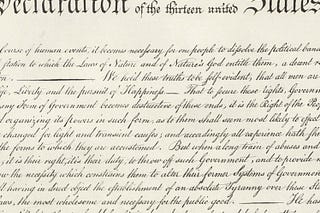 Declaration of the thirteen united States
Course of human events, it becomes necessary for one people to dissolve the political band
station to which the Laws of Nature and of Nature's God entitle them, a
We hold these truths to be self-evident, that all men are
Life, Liberty and the pursuit of Happiness — That to secure these rights, Govern
any Form of Government becomes destructive of these ends, it is the Right of the Peop
organizing its powers in such form, as to them shall seem most likely to effect
changed for light and transient causes; and accordingly all experience hath
the forms to which they are accustomed. But when a long train of abuses and
it is their right, it is their duty, to throw off such Government, and to provide
the necessity which constrains them to alter their former Systems of Government
all having in direct object the establishment of an absolute Tyranny over these
Laws, the most wholesome and necessary for the public good. — He has